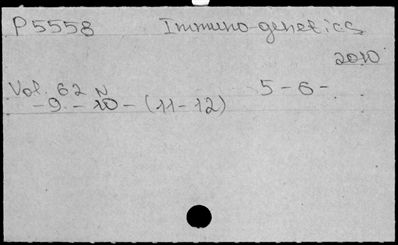 P5558 Immuno-genetics
2010
Vol. 62 N 5-6-
-9-10-(11-12)